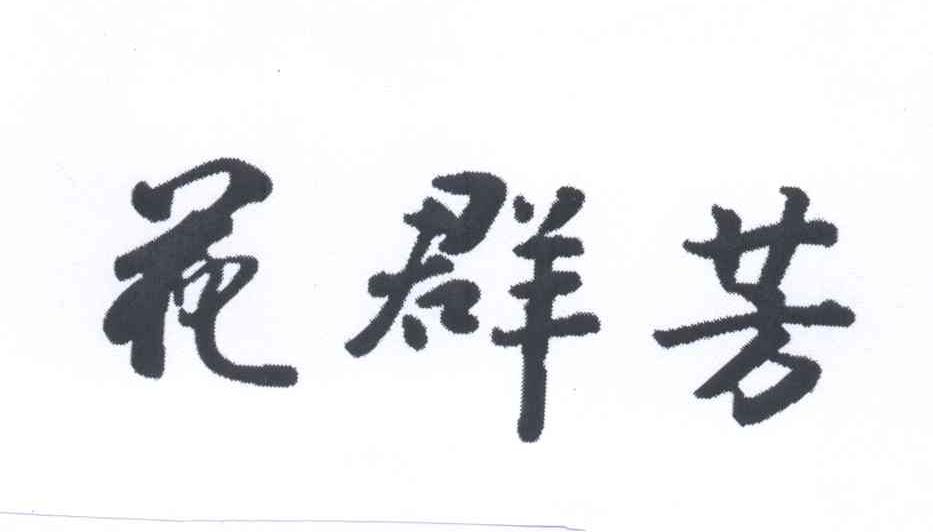 花群芳